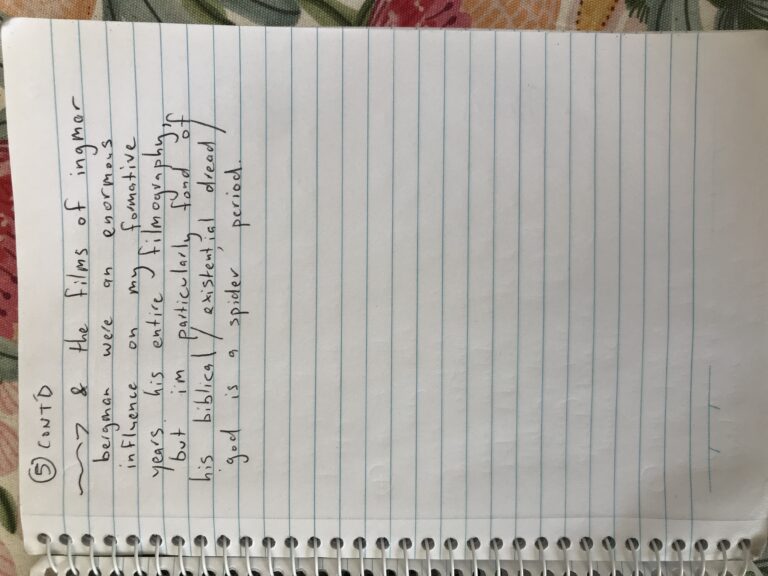 ⑤ CONT'D
& the films of ingmar
bergman were an enormous
influence on my formative
years. his entire filmography,
but i'm particularly fond of
his biblical / existential dread /
'god is a spider' period.